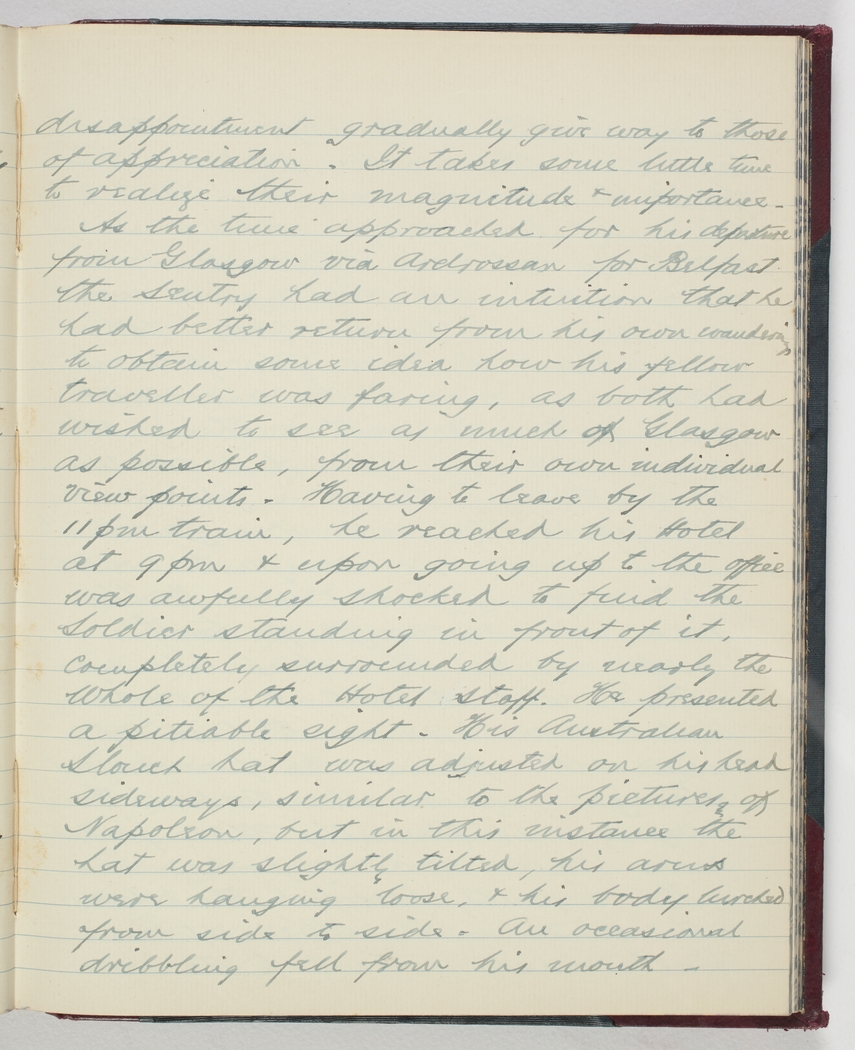 disappointment gradually give way to those
of appreciation. It takes some little time
to realize their magnitude & importance -
As the time approached for his departure
from Glasgow via Ardrossan for Belfast
the Sentry had an intuition that he
had better return from his own wanderings
to obtain some idea how his fellow
traveller was faring, as both had
wished to see as much of Glasgow
as possible, from their own individual
view points. Having to leave by the
11 pm train, he reached his Hotel
at 9 pm & upon going up to the office
was awfully shocked to find the
Soldier standing in front of it,
completely surrounded by nearly the
whole of the Hotel staff. He presented
a pitiable sight. His Australian
Slouch hat was adjusted on his head
sideways, similar to the pictures of
Napoleon, but in this instance the
hat was slightly tilted, his arms
were hanging loose, & his body lurched
from side to side. An occasional
dribbling fell from his mouth -